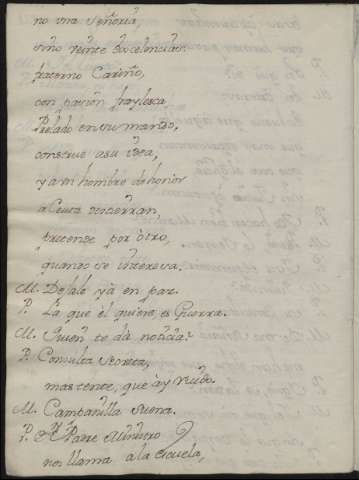 no una Señoria,
sino veinte Excelencias.
paterno Cariño,
con pasion fraylesca
Prelado en su mando,
construe a su idea,
y a un hombre de honor
a Ceuta destierran,
pretende por otro,
quando se interesa.
M. Dejalo ya en paz.
P. La que el quiere, es Guerra.
M. Quien te da noticia?
P. Consulta secreta,
mas tente, que ay ruido.
M. Campanilla suena.
P. El Padre Ministro
nos llama a la Escuela,